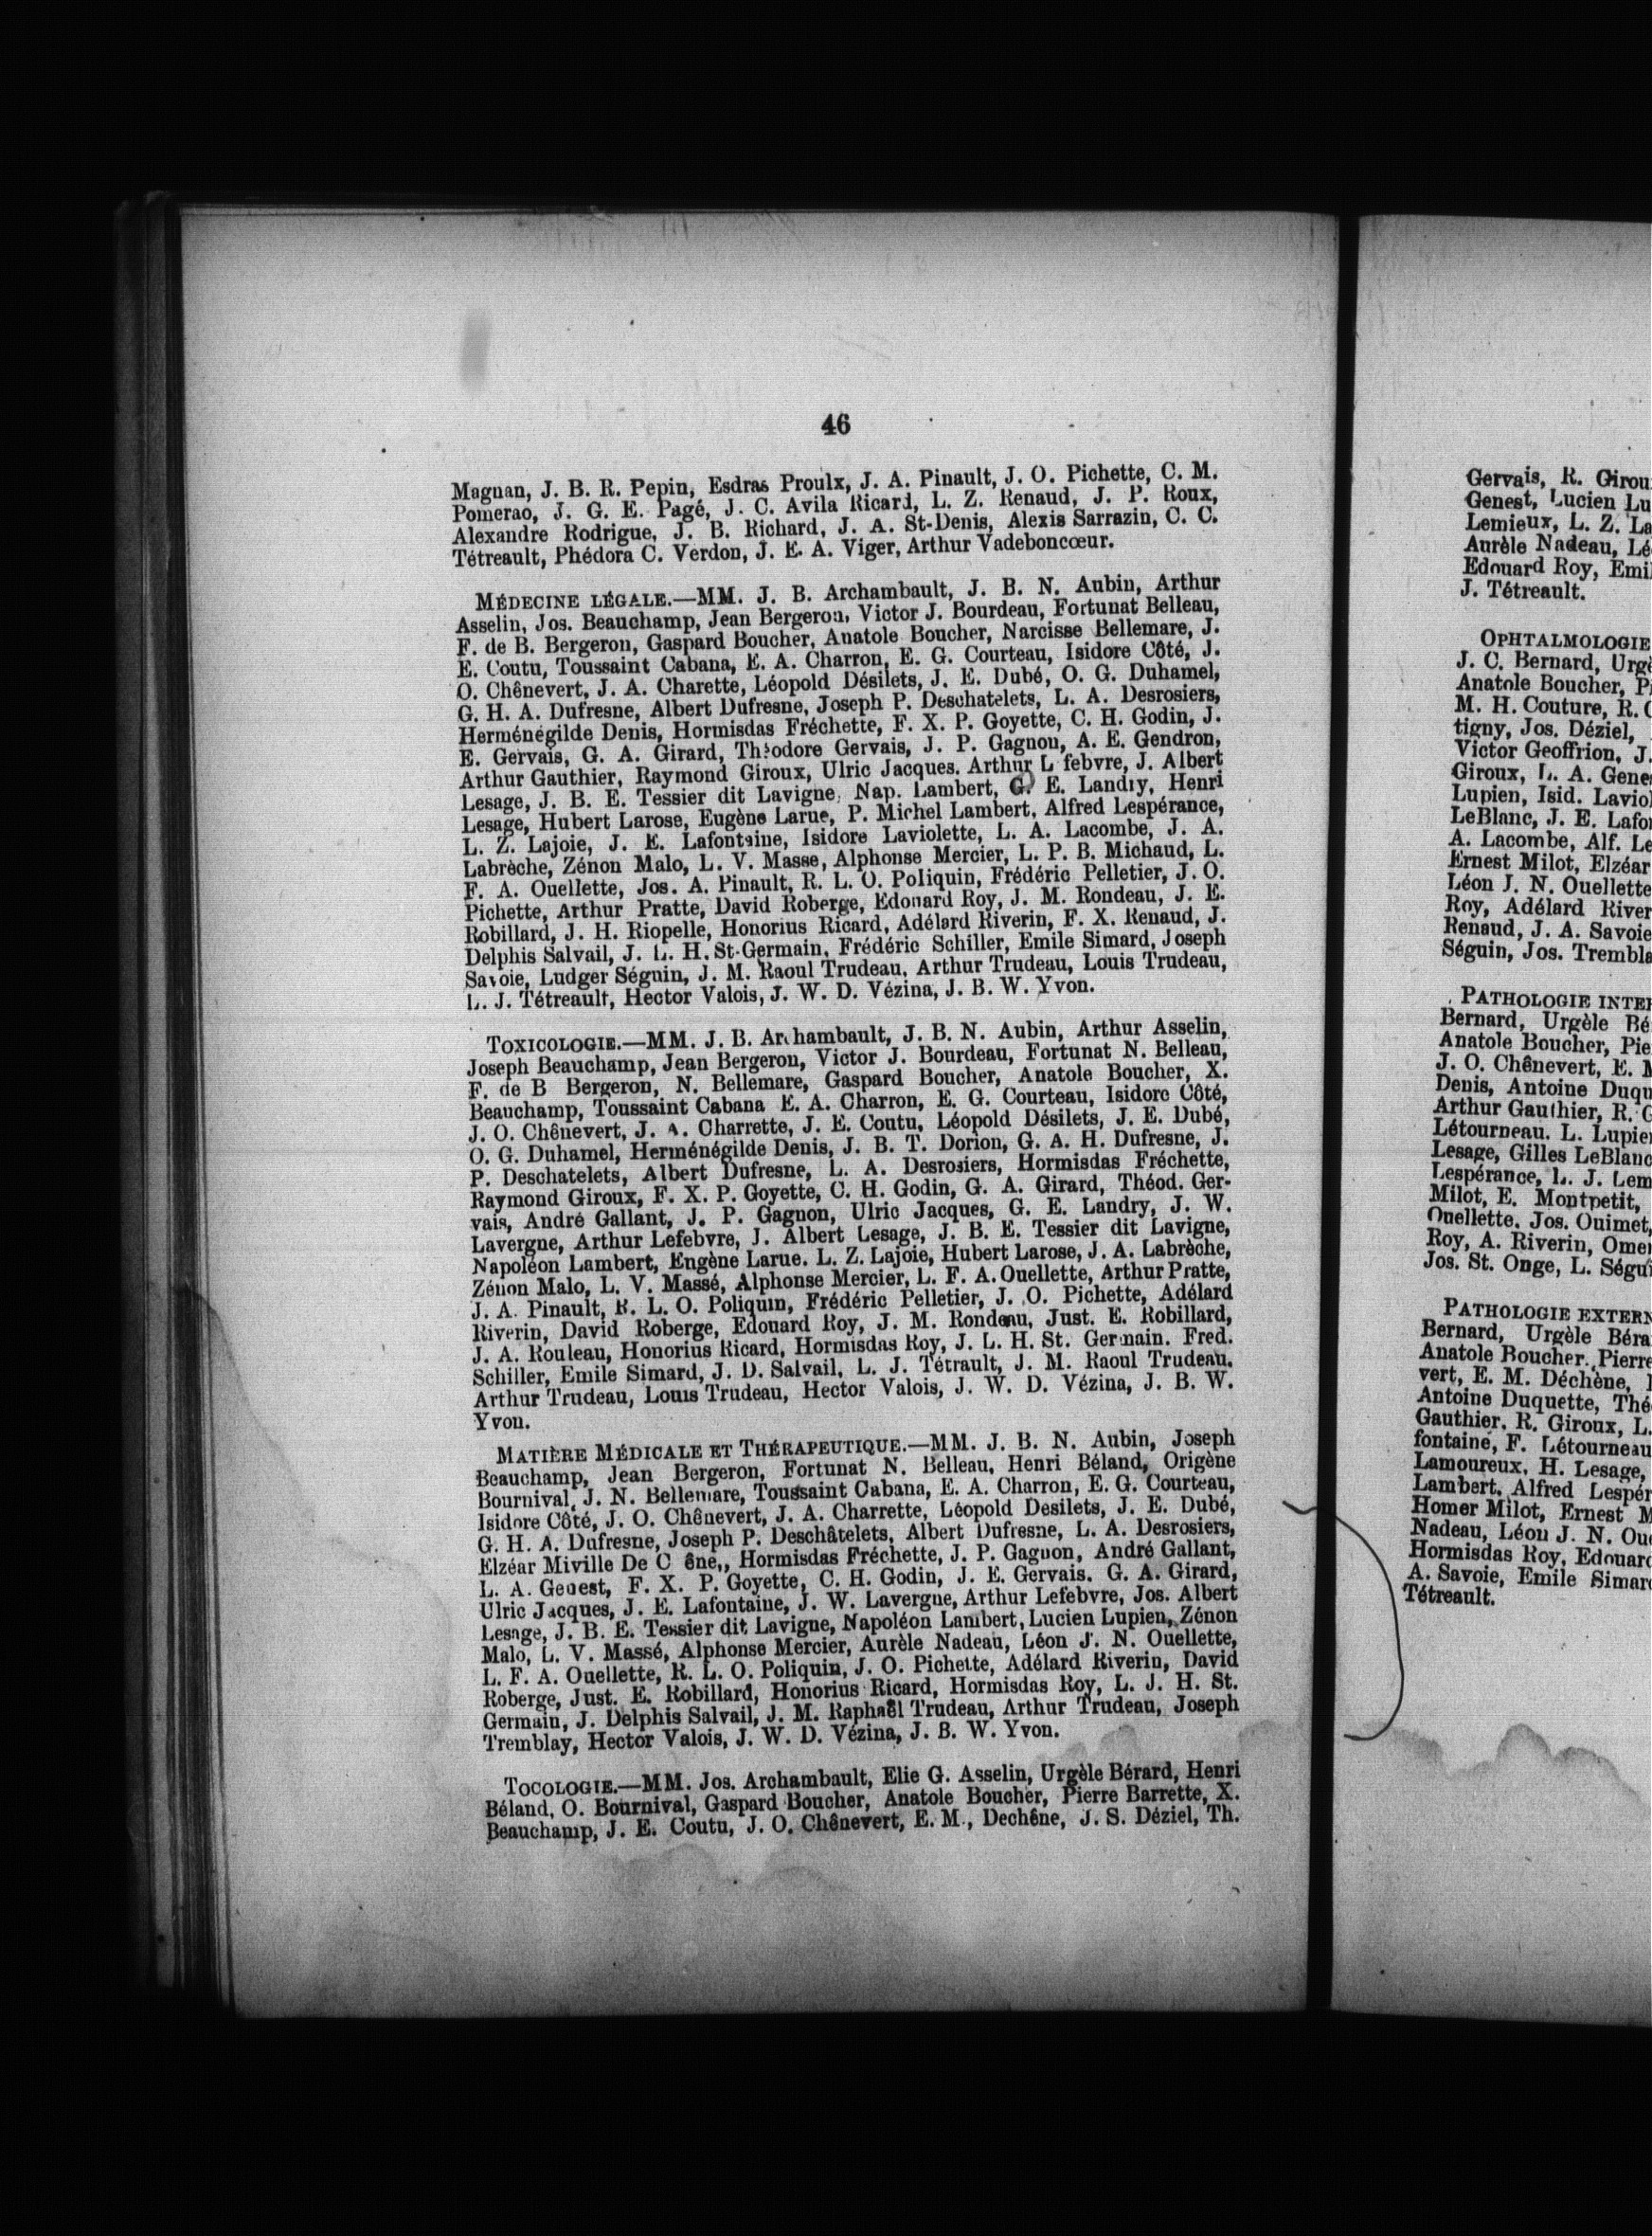 46
Magnan, J. B. R. Pepin, Esdras Proulx, J. A. Pinault, J. O. Pichette, C. M.
Pomerao, J. G. E. Pagé, J. C. Avila Ricard, L. Z. Renaud, J. P. Roux,
Alexandre Rodrigue, J. B. Richard, J. A. St-Denis, Alexis Sarrazin, C. C.
Tétreault, Phédora C. Verdon, J. E. A. Viger, Arthur Vadeboncœur.
MÉDECINE LÉGALE.—MM. J. B. Archambault, J. B. N. Aubin, Arthur
Asselin, Jos. Beauchamp, Jean Bergeron, Victor J. Bourdeau, Fortunat Belleau,
F. de B. Bergeron, Gaspard Boucher, Anatole Boucher, Narcisse Bellemare, J.
E. Coutu, Toussaint Cabana, E. A. Charron, E. G. Courteau, Isidore Côté, J.
O. Chênevert, J. A. Charette, Léopold Désilets, J. E. Dubé, O. G. Duhamel,
G. H. A. Dufresne, Albert Dufresne, Joseph P. Deschatelets, L. A. Desrosiers,
Herménégilde Denis, Hormisdas Fréchette, F. X. P. Goyette, C. H. Godin, J.
E. Gervais, G. A. Girard, Théodore Gervais, J. P. Gagnon, A. E. Gendron,
Arthur Gauthier, Raymond Giroux, Ulric Jacques. Arthur L febvre, J. Albert
Lesage, J. B. E. Tessier dit Lavigne, Nap. Lambert, G. E. Landry, Henri
Lesage, Hubert Larose, Eugène Larue, P. Michel Lambert, Alfred Lespérance,
L. Z. Lajoie, J. E. Lafontaine, Isidore Laviolette, L. A. Lacombe, J. A.
Labrèche, Zénon Malo, L. V. Masse, Alphonse Mercier, L. P. B. Michaud, L.
F. A. Ouellette, Jos. A. Pinault, R. L. O. Poliquin, Frédéric Pelletier, J. O.
Pichette, Arthur Pratte, David Roberge, Edouard Roy, J. M. Rondeau, J. E.
Robillard, J. H. Riopelle, Honorius Ricard, Adélard Riverin, F. X. Renaud, J.
Delphis Salvail, J. L. H. St-Germain, Frédéric Schiller, Emile Simard, Joseph
Savoie, Ludger Séguin, J. M. Raoul Trudeau, Arthur Trudeau, Louis Trudeau,
L. J. Tétreault, Hector Valois, J. W. D. Vézina, J. B. W. Yvon.
TOXICOLOGIE.—MM. J. B. Archambault, J. B. N. Aubin, Arthur Asselin,
Joseph Beauchamp, Jean Bergeron, Victor J. Bourdeau, Fortunat N. Belleau,
F. de B Bergeron, N. Bellemare, Gaspard Boucher, Anatole Boucher, X.
Beauchamp, Toussaint Cabana E. A. Charron, E. G. Courteau, Isidore Côté,
J. O. Chênevert, J. A. Charrette, J. E. Coutu, Léopold Désilets, J. E. Dubé,
O. G. Duhamel, Herménégilde Denis, J. B. T. Dorion, G. A. H. Dufresne, J.
P. Deschatelets, Albert Dufresne, L. A. Desrosiers, Hormisdas Fréchette,
Raymond Giroux, F. X. P. Goyette, C. H. Godin, G. A. Girard, Théod. Ger-
vais, André Gallant, J. P. Gagnon, Ulric Jacques, G. E. Landry, J. W.
Lavergne, Arthur Lefebvre, J. Albert Lesage, J. B. E. Tessier dit Lavigne,
Napoléon Lambert, Eugène Larue. L. Z. Lajoie, Hubert Larose, J. A. Labrèche,
Zénon Malo, L. V. Massé, Alphonse Mercier, L. F. A. Ouellette, Arthur Pratte,
J. A. Pinault, R. L. O. Poliquin, Frédéric Pelletier, J. O. Pichette, Adélard
Riverin, David Roberge, Edouard Roy, J. M. Rondeau, Just. E. Robillard,
J. A. Rouleau, Honorius Ricard, Hormisdas Roy, J. L. H. St. Germain. Fred.
Schiller, Emile Simard, J. D. Salvail, L. J. Tétrault, J. M. Raoul Trudeau.
Arthur Trudeau, Louis Trudeau, Hector Valois, J. W. D. Vézina, J. B. W.
Yvon.
MATIÈRE MÉDICALE ET THÉRAPEUTIQUE.—MM. J. B. N. Aubin, Joseph
Beauchamp, Jean Bergeron, Fortunat N. Belleau, Henri Béland, Origène
Bournival, J. N. Bellemare, Toussaint Cabana, E. A. Charron, E. G. Courteau,
Isidore Côté, J. O. Chênevert, J. A. Charrette, Léopold Desilets, J. E. Dubé,
G. H. A. Dufresne, Joseph P. Deschâtelets, Albert Dufresne, L. A. Desrosiers,
Elzéar Miville De C êne,, Hormisdas Fréchette, J. P. Gagnon, André Gallant,
L. A. Genest, F. X. P. Goyette, C. H. Godin, J. E. Gervais. G. A. Girard,
Ulric Jacques, J. E. Lafontaine, J. W. Lavergne, Arthur Lefebvre, Jos. Albert
Lesage, J. B. E. Tessier dit Lavigne, Napoléon Lambert, Lucien Lupien, Zénon
Malo, L. V. Massé, Alphonse Mercier, Aurèle Nadeau, Léon J. N. Ouellette,
L. F. A. Ouellette, R. L. O. Poliquin, J. O. Pichette, Adélard Riverin, David
Roberge, Just. E. Robillard, Honorius Ricard, Hormisdas Roy, L. J. H. St.
Germain, J. Delphis Salvail, J. M. Raphaël Trudeau, Arthur Trudeau, Joseph
Tremblay, Hector Valois, J. W. D. Vézina, J. B. W. Yvon.
TOCOLOGIE.—MM. Jos. Archambault, Elie G. Asselin, Urgèle Bérard, Henri
Béland, O. Bournival, Gaspard Boucher, Anatole Boucher, Pierre Barrette, X.
Beauchamp, J. E. Coutu, J. O. Chênevert, E. M., Dechêne, J. S. Déziel, Th.
Gervais, R. Girou
Genest, Lucien Lu
Lemieux, L. Z. La
Aurèle Nadeau, Lé
Edouard Roy, Emi
J. Tétreault.
OPHTALMOLOGIE
J. C. Bernard, Urgè
Anatole Boucher, P
M. H. Couture, R. C
tigny, Jos. Déziel,
Victor Geoffrion, J.
Giroux, L. A. Gene
Lupien, Isid. Laviol
LeBlanc, J. E. Lafo
A. Lacombe, Alf. Le
Ernest Milot, Elzéar
Léon J. N. Ouellette
Roy, Adélard River
Renaud, J. A. Savoie
Séguin, Jos. Trembla
PATHOLOGIE INTER
Bernard, Urgèle Bé
Anatole Boucher, Pie
J. O. Chênevert, E. M
Denis, Antoine Duqu
Arthur Gauthier, R. G
Létourneau. L. Lupie
Lesage, Gilles LeBlanc
Lespérance, L. J. Lem
Milot, E. Montpetit,
Ouellette. Jos. Ouimet,
Roy, A. Riverin, Ome
Jos. St. Onge, L. Ségui
PATHOLOGIE EXTERN
Bernard, Urgèle Béra
Anatole Boucher. Pierre
vert, E. M. Déchène,
Antoine Duquette, Thé
Gauthier, R. Giroux, L.
fontaine, F. Létourneau
Lamoureux, H. Lesage,
Lambert, Alfred Lespér
Homer Milot, Ernest M
Nadeau, Léon J. N. Oue
Hormisdas Roy, Edouard
A. Savoie, Emile Simar
Tétreault.